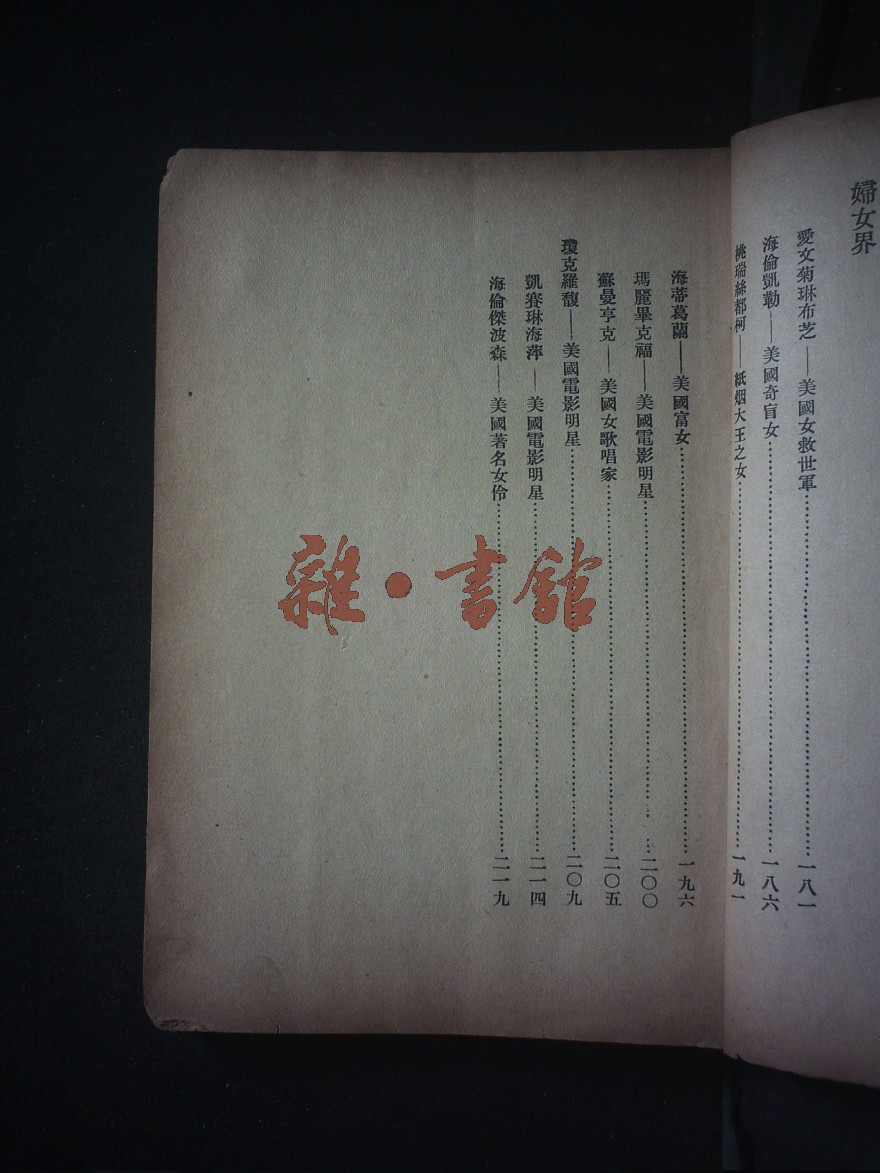 婦女界
愛文菊琳布芝——美國女救世軍……一八一
海倫凱勒——美國奇盲女……一八六
桃瑞絲都柯——紙烟大王之女……一九一
海蒂葛蘭——美國富女……一九六
瑪麗畢克福——美國電影明星……二〇〇
蘇曼亨克——美國女歌唱家……二〇五
瓊克羅馥——美國電影明星……二〇九
凱賽琳海萍——美國電影明星……二一四
海倫傑波森——美國著名女伶……二一九
雜·書館